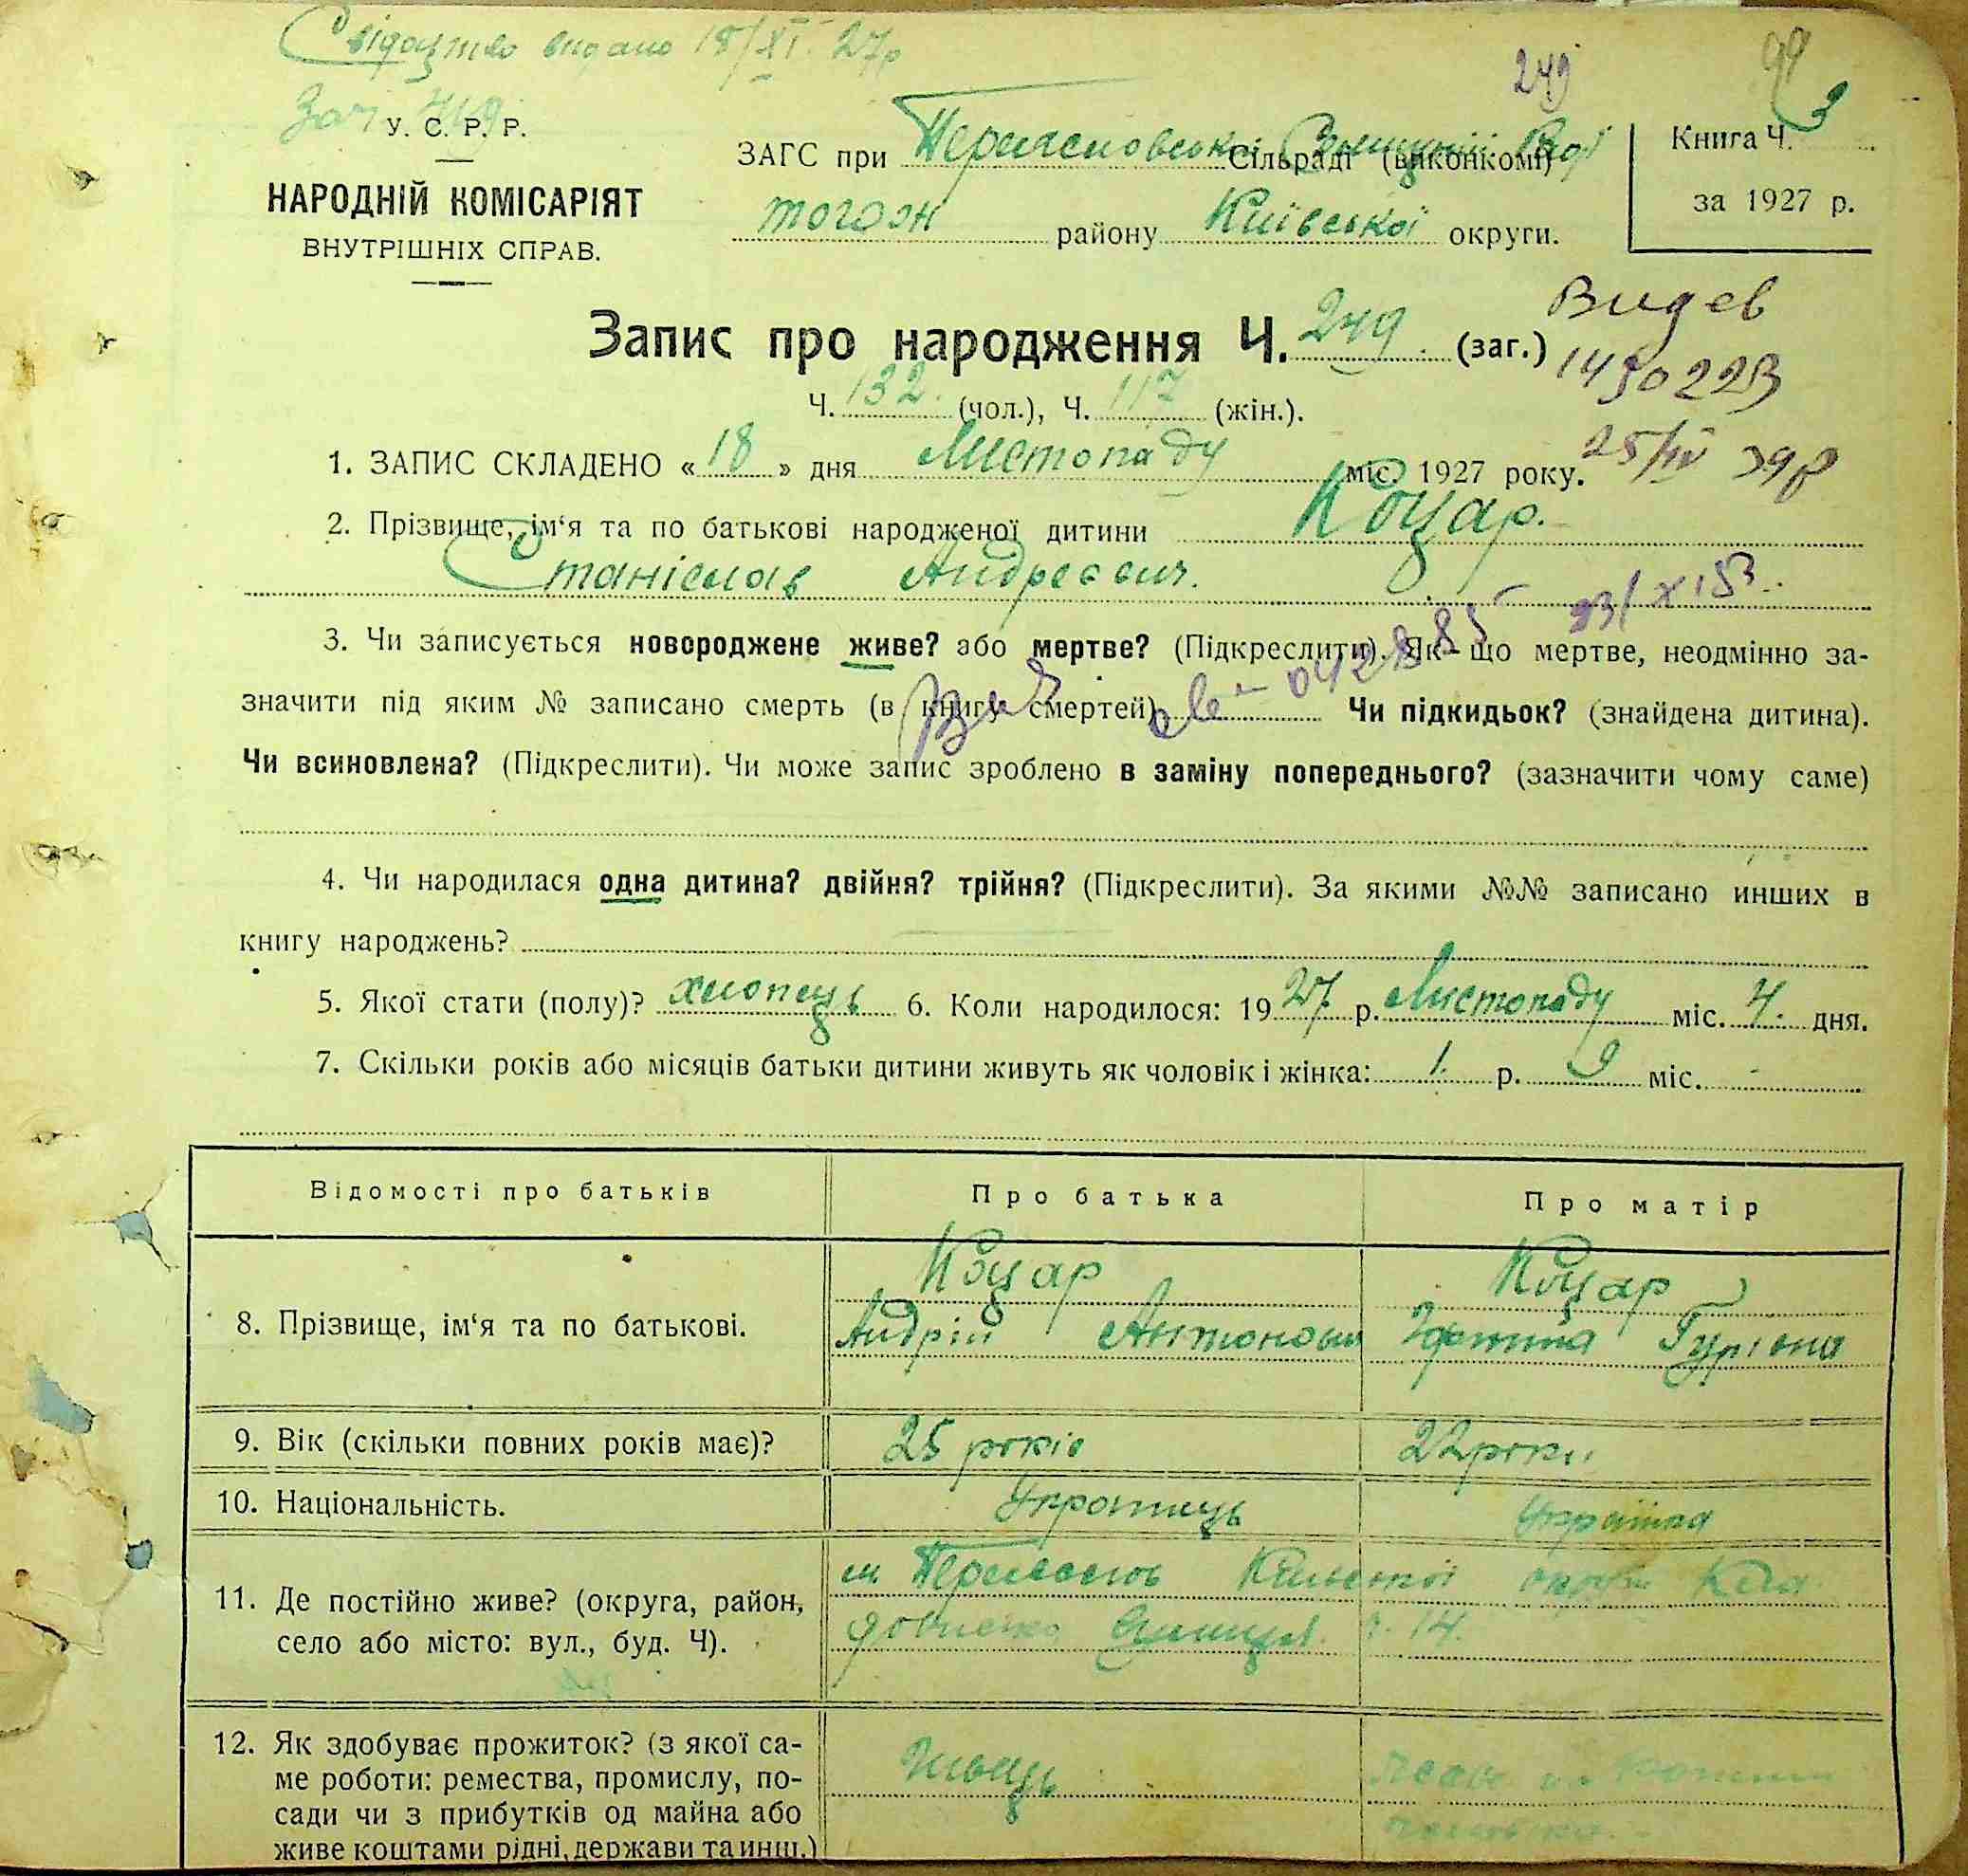 Свідоцтво видано 18/XI 27р
249
3
У. С. Р. Р.
НАРОДНІЙ КОМІСАРІЯТ
ВНУТРІШНІХ СПРАВ.
ЗАГС при Сільраді (виконкомі)
тогож району Київської округи.
Книга Ч.
за 1927 р.
Запис про народження Ч. 249 (заг.)
Ч. 132 (чол.), Ч. 117 (жін.).
1. ЗАПИС СКЛАДЕНО « 18 » дня Листопаду міс. 1927 року.
2. Прізвище, ім‘я та по батькові народженої дитини Коцар.
Станіслав Андреєвич.
3. Чи записується новороджене живе? або мертве? (Підкреслити). Як-що мертве, неодмінно за-
значити під яким № записано смерть (в книгу смертей) Чи підкидьок? (знайдена дитина).
Чи всиновлена? (Підкреслити). Чи може запис зроблено в заміну попереднього? (зазначити чому саме)
4. Чи народилася одна дитина? двійня? трійня? (Підкреслити). За якими №№ записано инших в
книгу народжень?
5. Якої стати (полу)? хлопець 6. Коли народилося: 19 27 р. Листопаду міс. 4. дня.
7. Скільки років або місяців батьки дитини живуть як чоловік і жінка: 1 р. 9 міс. -
Відомості про батьків
Про батька
Про матір
8. Прізвище, ім‘я та по батькові.
Коцар
Андрій Антонович
Коцар
Гурівна
9. Вік (скільки повних років має)?
25 років
22 роки
10. Національність.
Українець
Українка
11. Де постійно живе? (округа, район,
село або місто: вул., буд. Ч).
м Київської округи
вулиця 14.
12. Як здобуває прожиток? (з якої са-
ме роботи: ремества, промислу, по-
сади чи з прибутків од майна або
живе коштами рідні, держави та инш.)